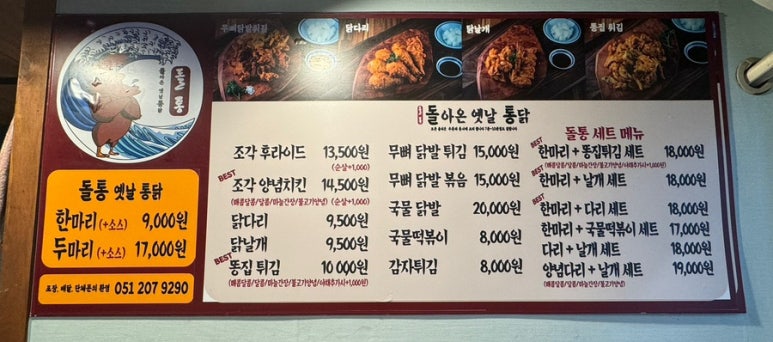 돌통
무뼈닭발튀김
닭다리
닭날개
똥집 튀김
돌아온 옛날 통닭
돌통 옛날 통닭
한마리 (+소스) 9,000원
두마리 (+소스) 17,000원
포장, 배달, 단체문의 환영 051 207 9290
조각 후라이드 13,500원
(순살+1,000)
BEST
조각 양념치킨 14,500원
(매콤달콤/달콤/마늘간장/불고기양념) (순살+1,000)
닭다리 9,500원
닭날개 9,500원
BEST
똥집 튀김 10,000원
(매콤달콤/달콤/마늘간장/불고기양념/야채추가시+1,000원)
무뼈 닭발 튀김 15,000원
무뼈 닭발 볶음 15,000원
국물 닭발 20,000원
국물떡볶이 8,000원
감자튀김 8,000원
돌통 세트 메뉴
BEST
한마리 + 똥집튀김 세트 18,000원
(매콤달콤/달콤/마늘간장/불고기양념/야채추가시+1,000원)
BEST
한마리 + 날개 세트 18,000원
BEST
한마리 + 다리 세트 18,000원
한마리 + 국물떡볶이 세트 17,000원
다리 + 날개 세트 18,000원
양념다리 + 날개 세트 19,000원
(매콤달콤/달콤/마늘간장/불고기양념)